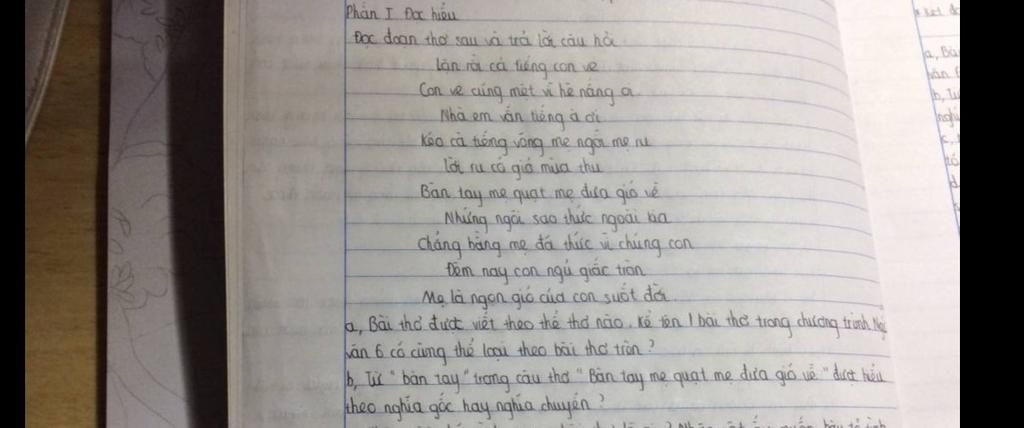 Phần I Đọc hiểu
Đọc đoạn thơ sau và trả lời câu hỏi
Lặn rồi cả tiếng con ve
Con ve cũng mệt vì hè nắng oi
Nhà em vẫn tiếng à ơi
Kẽo cà tiếng võng mẹ ngồi mẹ ru
Lời ru có gió mùa thu
Bàn tay mẹ quạt mẹ đưa gió về
Những ngôi sao thức ngoài kia
Chẳng bằng mẹ đã thức vì chúng con
Đêm nay con ngủ giấc tròn
Mẹ là ngọn gió của con suốt đời.
a, Bài thơ được viết theo thể thơ nào. Kể tên 1 bài thơ trong chương trình Ngữ
văn 6 có cùng thể loại theo bài thơ trên ?
b, Từ " bàn tay " trong câu thơ " Bàn tay mẹ quạt mẹ đưa gió về " được hiểu
theo nghĩa gốc hay nghĩa chuyển ?
a, Bà
văn 6
b, Từ